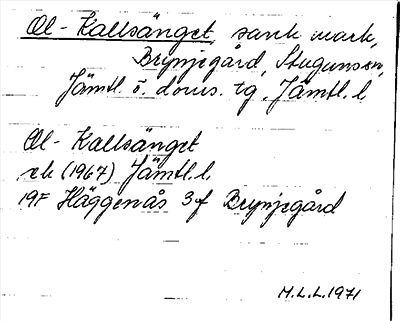 Ol-Kallsänget, sank mark,
Brynjegård, Stugunsön,
Jämtl. ö. doms. tg. Jämtl. l
Ol-Kallsänget
ek (1967) Jämtl. l.
19F Häggenås 3f Brynjegård
M.L.L. 1971